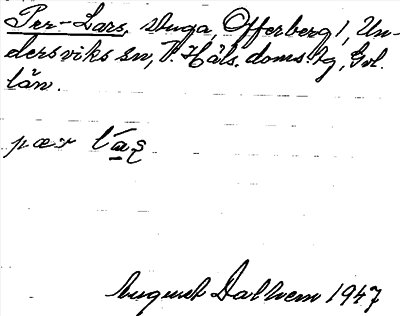 Per-Lars, stuga, Offerberg 1, Un-
dersviks sn, V. Häls. doms. tg, Gvl.
län.
pær
August Dalhem 1947